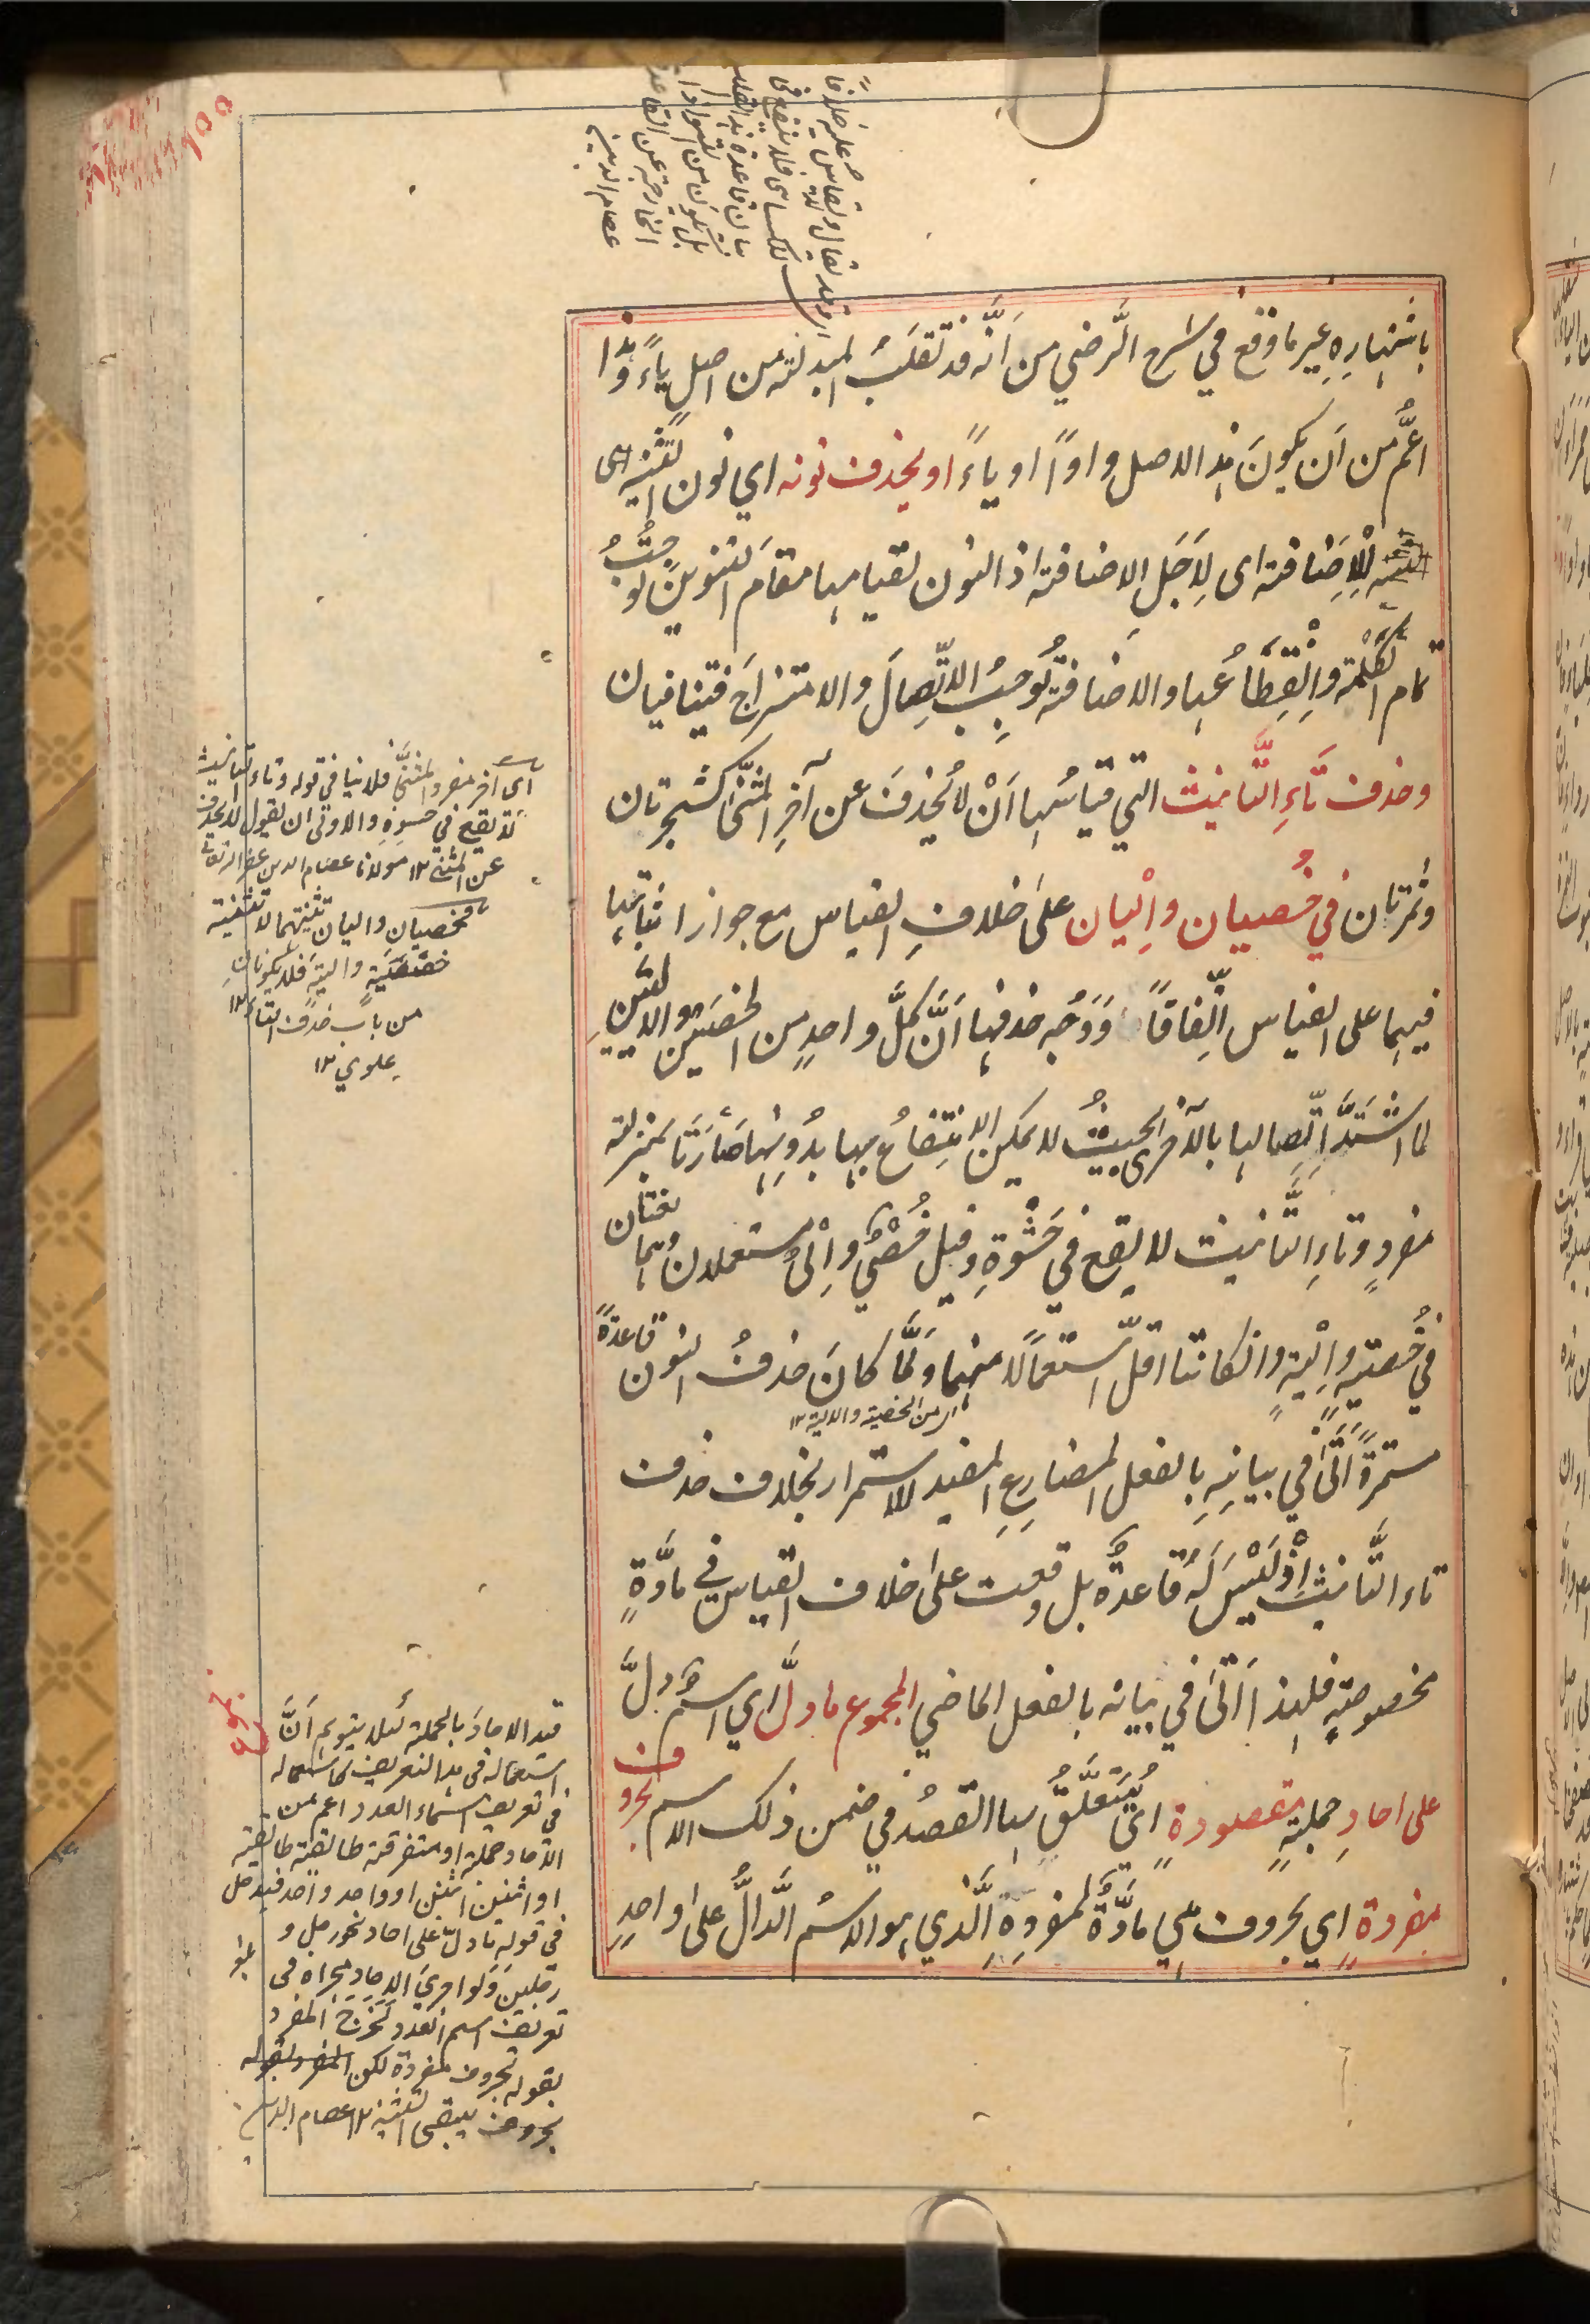 باشتهاره غير ما وقع في شرح الرضي من أنّه قد تقلب المبدلة من اصل ياءً وهذا
اعمّ من أن يكونَ هذا الاصل واوًا او ياءً او يحذف نونه اي نون التثنية
للاِضافة اى لِاَجَلِ الاضافة اذ النون لقيامها مقام التنوين توجبُ
تمام الكلمة وانْقِطاعُها والاضافة تُوجِبُ الاتّصالَ والامتزاجَ فيتنافيان
وحذف تاءِ التَّانيث التي قياسُها اَنْ لا يُحذفَ عن آخرِ المثنّى كشجرتان
وثمرتان في خُصيان واِلْيان على خلافِ القياس مع جواز اثباتها
فيهما على القياس اتّفاقًا وَوَجْه حذفها اَنَّ كلَّ واحدٍ من الخصيتين والاليتينِ
لما اشتدَّ اتّصالها بالاُخرى بحيثُ لا يمكن الانتفاعُ بها بدُونِها صَارَتَا بمنزلة
مفردٍ وتاءِ التَّانيث لا يقع في حَشْوِهِ وقيل خُصْيٌ واِلْىٌ مستعملان وهما لغتان
في خُصيةٍ واِلْيةٍ وان كانتا اقلّ استعمالًا منهما ولَمَّا كانَ حذفُ النون قاعدةً
اى من الخصية والالية ١٢
مستمرةً اَتَى في بيانِهِ بالفعل المضارِعِ المفيد للاستمرار بخلاف حذف
تاء التَّانيث اِذْ لَيْسَ لَهُ قاعدةٌ بل وقعت على خلاف القياس في مادَّةٍ
مخصوصةٍ فلهذا اَتَى في بيانه بالفعل الماضي المجموع ما دلّ اي اسمٌ دلَّ
على احادِ جملةٍ مقصودةٍ اي يُتَعلَّقُ بها القصدُ في ضمن ذلك الاسم بحروف
مفردةٍ اي بحروف هي مادَّةٌ لمفردِهِ الَّذي هو الاسمُ الدَّالُّ على واحدٍ
وقد يقال وتقاس عليه خلافًا
للكسائى
عصام الدين
اى آخر مفرد المثنّى فلا ينافي قوله وتاء التانيث
لا يقع في حشوه والاولى ان يقول لا يحذف
عن المثنى ١٢ مولانا عصام الدين
فخصيان واليان تثنيتهما لا تثنية
خصية والية فلا يكونان
من باب حذف التاء ١٢
علوي ١٢
قيد الاحاد بالجملة لئلا يتوهم اَنَّ
استعماله في هذا التعريف كاستعماله
في تعريف اسماء العدد اعم من
الآحاد جملة او متفرقة طائفة طائفة
او اثنين اثنين او واحد واحد فيدخل
في قوله ما دلّ على احاد نحو رجل و
رجلين ولو اجرى الاحاد مجراه في
تعريف اسم العدد لخرج المفرد
بقوله بحروف مفردة لكن
بحروف يبقى التثنية ١٢ عصام الدين
مجموع